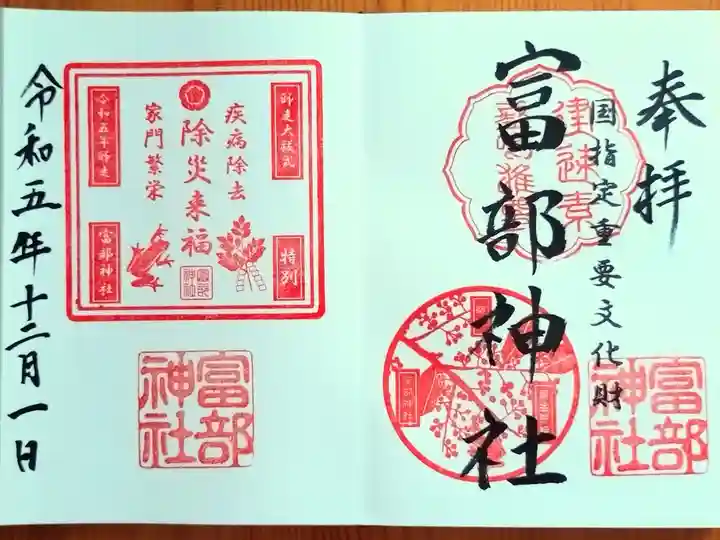 奉拝
国指定重要文化財
富部神社
建速素
富部神社
師走大祓式
特別
疾病除去
除災来福
家門繁栄
令和五年師走
富部神社
富部神社
富部神社
令和五年十二月一日